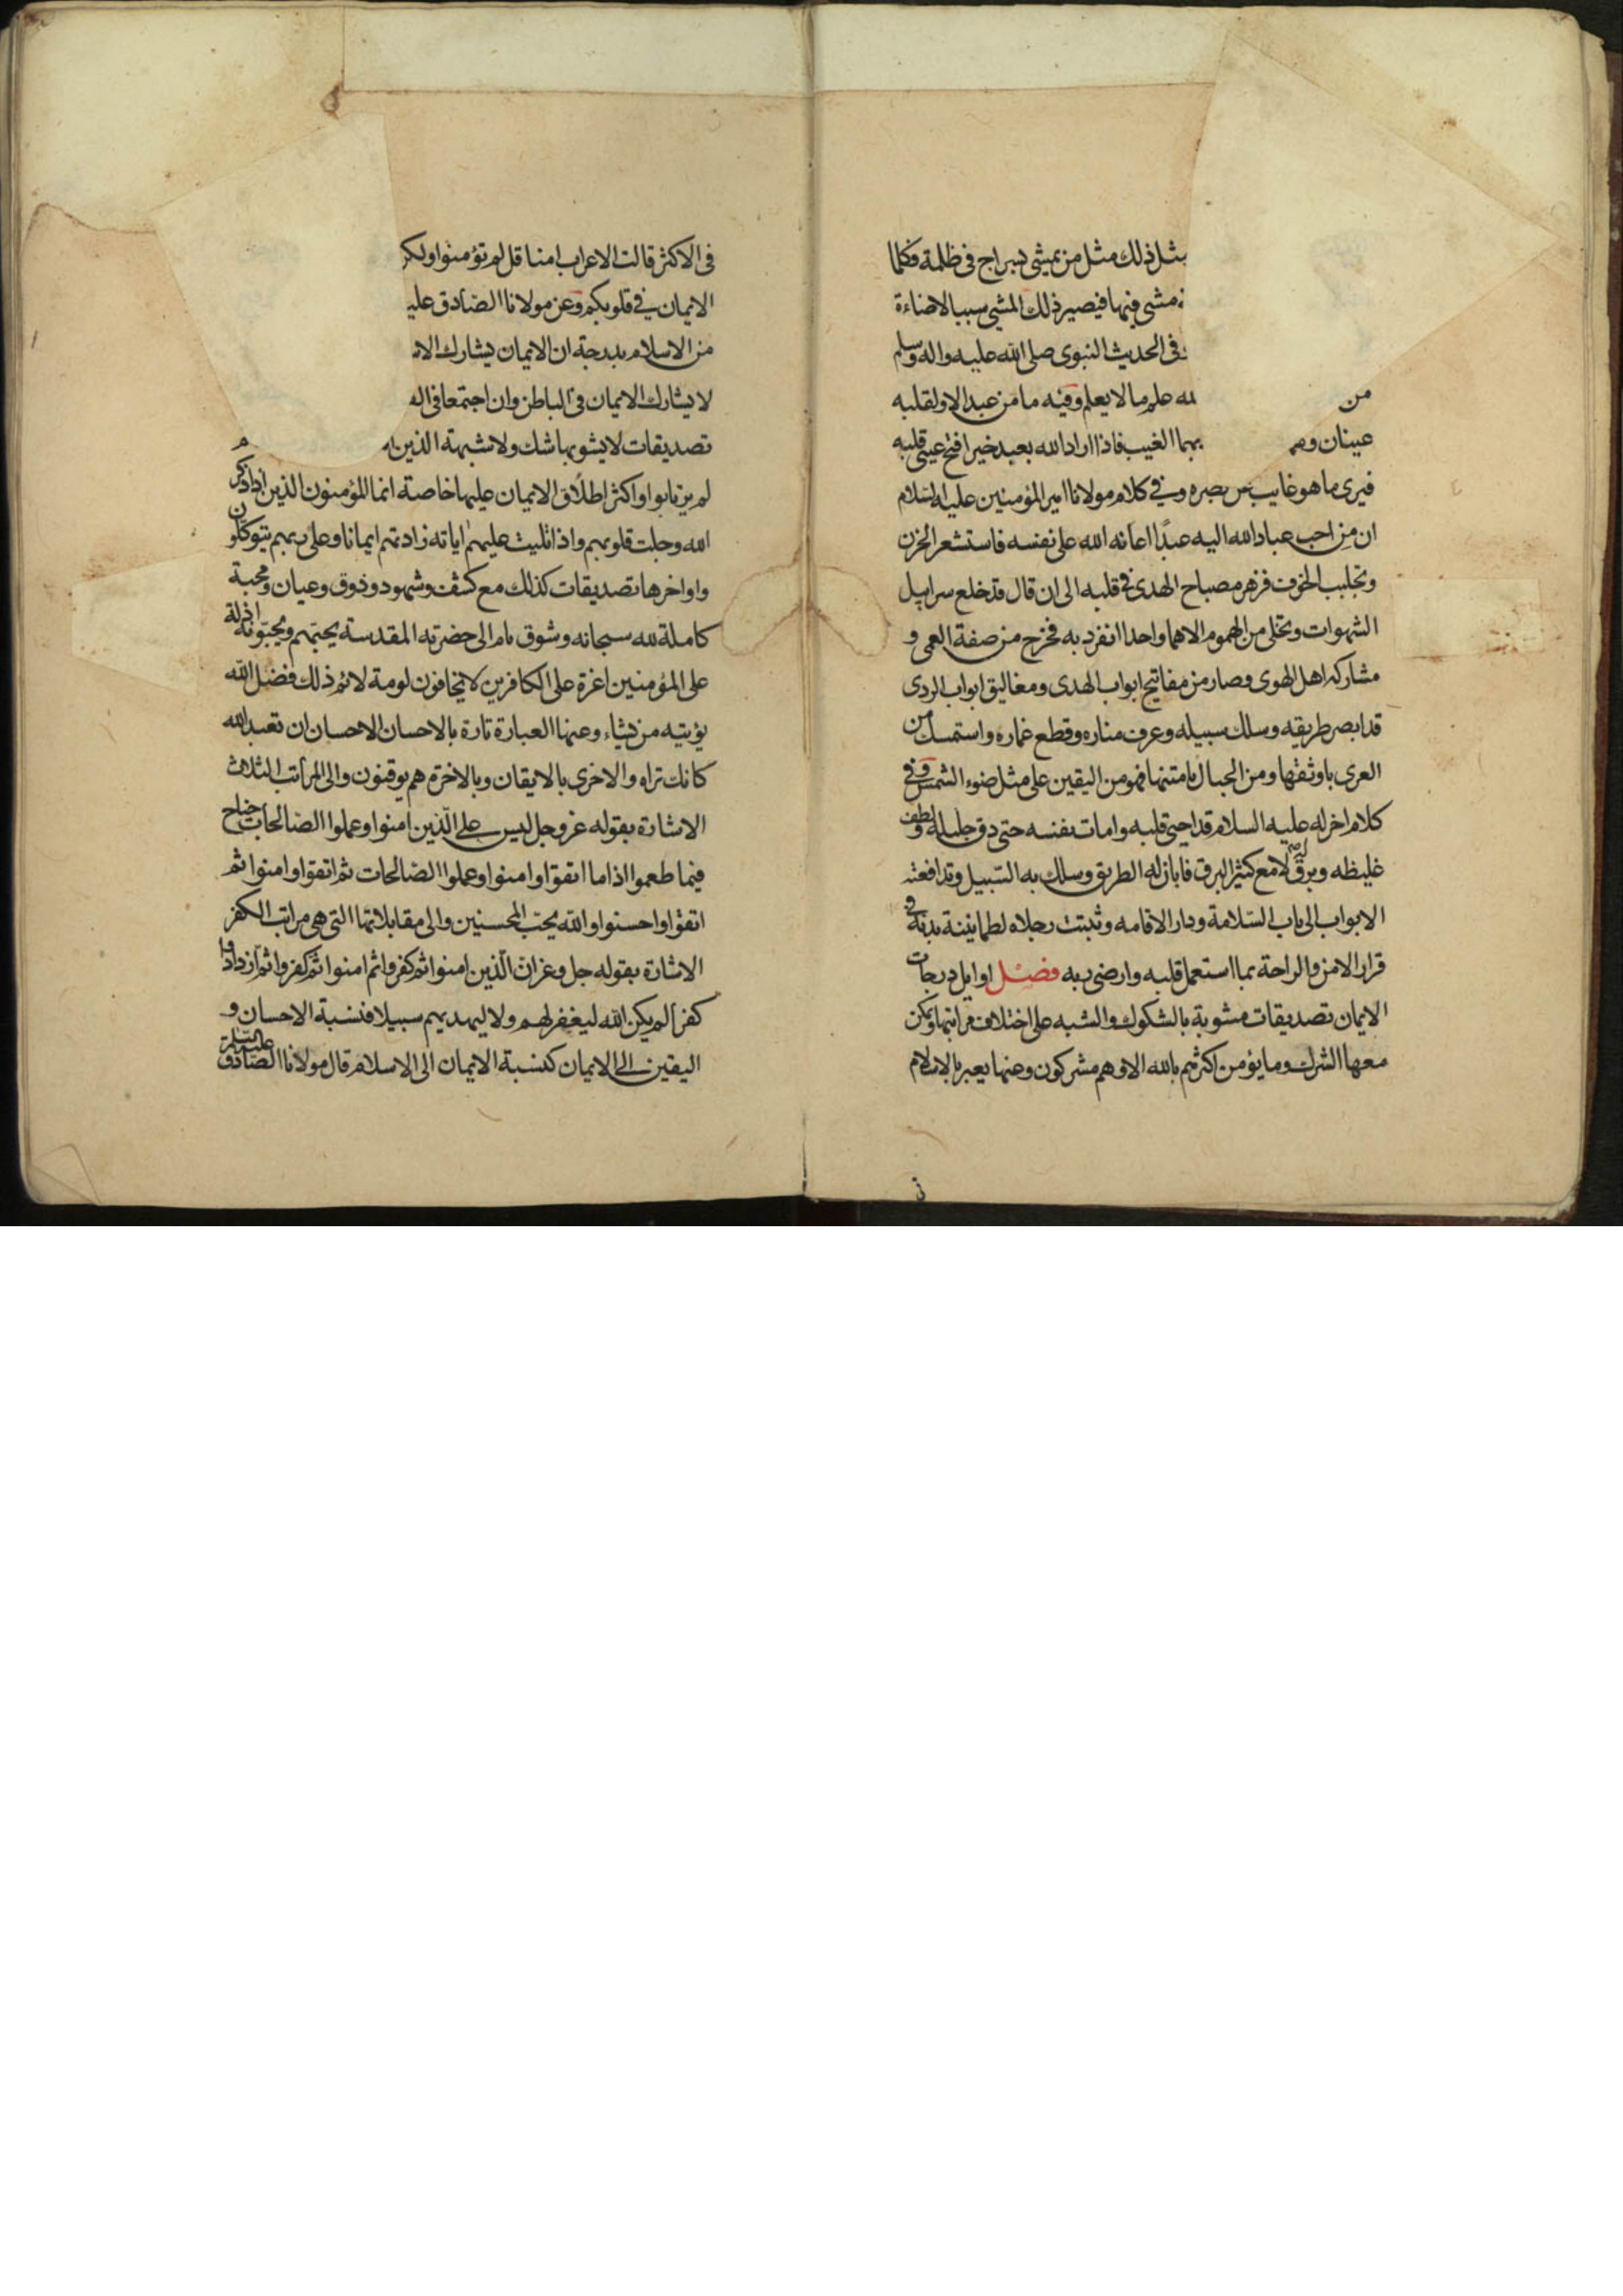 مثل ذلك مثل من يمشي بسراج في ظلمة فكلما
مشى فيها فيصير ذلك المشي سببا لاضاءة
في الحديث النبوي صلى الله عليه واله وسلم
من علم ما لا يعلم وفيه ما من عبد الا ولقلبه
عينان بهما الغيب فاذا اراد الله بعبد خيرا فتح عيني قلبه
فيرى ما هو غايب عن بصره وفي كلام مولانا امير المؤمنين عليه السلام
ان من احب عباد الله اليه عبدا اعانه الله على نفسه فاستشعر الحزن
وتجلبب الخوف فزهر مصباح الهدى في قلبه الى ان قال قد خلع سرابيل
الشهوات وتخلى من الهموم الا هما واحدا انفرد به فخرج من صفة العمى و
مشاركة اهل الهوى وصار من مفاتيح ابواب الهدى ومغاليق ابواب الردى
قد ابصر طريقه وسلك سبيله وعرف مناره وقطع غماره واستمسك من
العرى باوثقها ومن الحبال بامتنها فهو من اليقين على مثل ضوء الشمس وفي
كلام اخر له عليه السلام قد احيى قلبه وامات نفسه حتى دق جليله ولطف
غليظه وبرق له لامع كثير البرق فابان له الطريق وسلك به السبيل وتدافعته
الابواب الى باب السلامة ودار الاقامه وثبتت رجلاه لطمانينة بدنه في
قرار الامن والراحة بما استعمل قلبه وارضى ربه فصل اوايل درجات
الايمان تصديقات مشوبة بالشكوك والشبه على اختلاف مراتبها ويمكن
معها الشرك وما يؤمن اكثرهم بالله الا وهم مشركون وعنها يعبر بالاسلام
في الاكثر قالت الاعراب امنا قل لم تؤمنوا ولكن
الايمان في قلوبكم وعن مولانا الصادق عليه
من الاسلام بدرجة ان الايمان يشارك الا
لا يشارك الايمان في الباطن وان اجتمعا في
تصديقات لا يشوبها شك ولا شبهة الذين
لم يرتابوا واكثر اطلاق الايمان عليها خاصة انما المؤمنون الذين اذا ذكر
الله وجلت قلوبهم واذا تليت عليهم اياته زادتهم ايمانا وعلى ربهم يتوكلون
واواخرها تصديقات كذلك مع كشف وشهود وذوق وعيان ومحبة
كاملة لله سبحانه وشوق تام الى حضرته المقدسة يحبهم ويحبونه اذلة
على المؤمنين اعزة على الكافرين لا يخافون لومة لائم ذلك فضل الله
يؤتيه من يشاء وعنها العبارة تارة بالاحسان الاحسان ان تعبد الله
كانك تراه والاخرى بالايقان وبالاخرة هم يوقنون والى المراتب الثلاث
الاشارة بقوله عز وجل ليس على الذين امنوا وعملوا الصالحات جناح
فيما طعموا اذا ما اتقوا وامنوا وعملوا الصالحات ثم اتقوا وامنوا ثم
اتقوا واحسنوا والله يحب المحسنين والى مقابلاتها التي هي مراتب الكفر
الاشارة بقوله جل وعز ان الذين امنوا ثم كفروا ثم امنوا ثم كفروا ثم ازدادوا
كفرا لم يكن الله ليغفر لهم ولا ليهديهم سبيلا فنسبة الاحسان و
اليقين الى الايمان كنسبة الايمان الى الاسلام قال مولانا الصادق عليه السلم